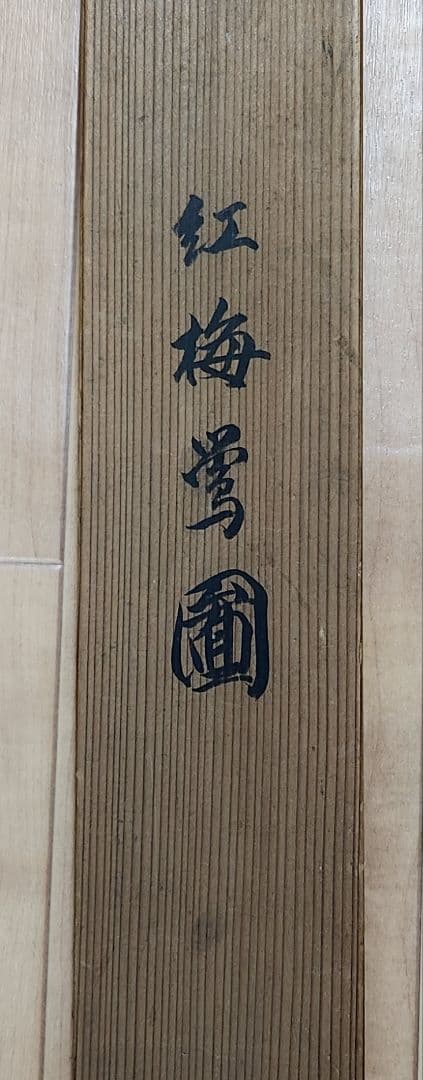 紅梅鶯圖